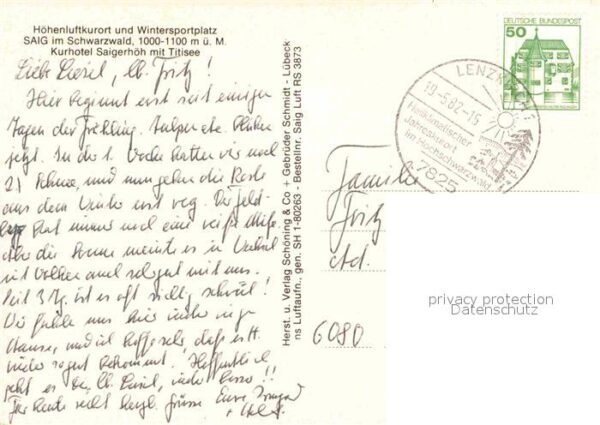 Höhenluftkurort und Wintersportplatz
SAIG im Schwarzwald, 1000-1100 m ü. M.
Kurhotel Saigerhöh mit Titisee
Liebe Liesel, lb. Fritz!
Hier beginnt erst seit einigen
Tagen der Frühling. Tulpen etc. blühen
jetzt. In der 1. Woche hatten wir noch
2x Schnee, und nun gehen die Reste
aus dem Winter erst weg. Der Feld-
berg hat immer noch eine weiße Mütze
aber die Sonne meinte es in
mit Wolken auch sehr gut mit uns.
Seit 3 Tg. ist es oft richtig schwül!
Wir fühlen uns hier wieder wie
Zuhause, und ich hoffe sehr, daß es H.
wieder sehr gut bekommt. Hoffentlich
geht es Dir, lb. Liesel, wieder besser!!
Für heute recht herzl. Grüsse Eure Irmgard
Herst. u. Verlag Schöning & Co + Gebrüder Schmidt - Lübeck
ns Luftaufn., gen. SH 1-80263 - Bestellnr. Saig Luft RS 3873
DEUTSCHE BUNDESPOST
50
LENZKIRCH
-5.82-15
Heilklimatischer
Jahreskurort
im Hochschwarzwald
7825
Familie
Fritz
6080
privacy protection
Datenschutz